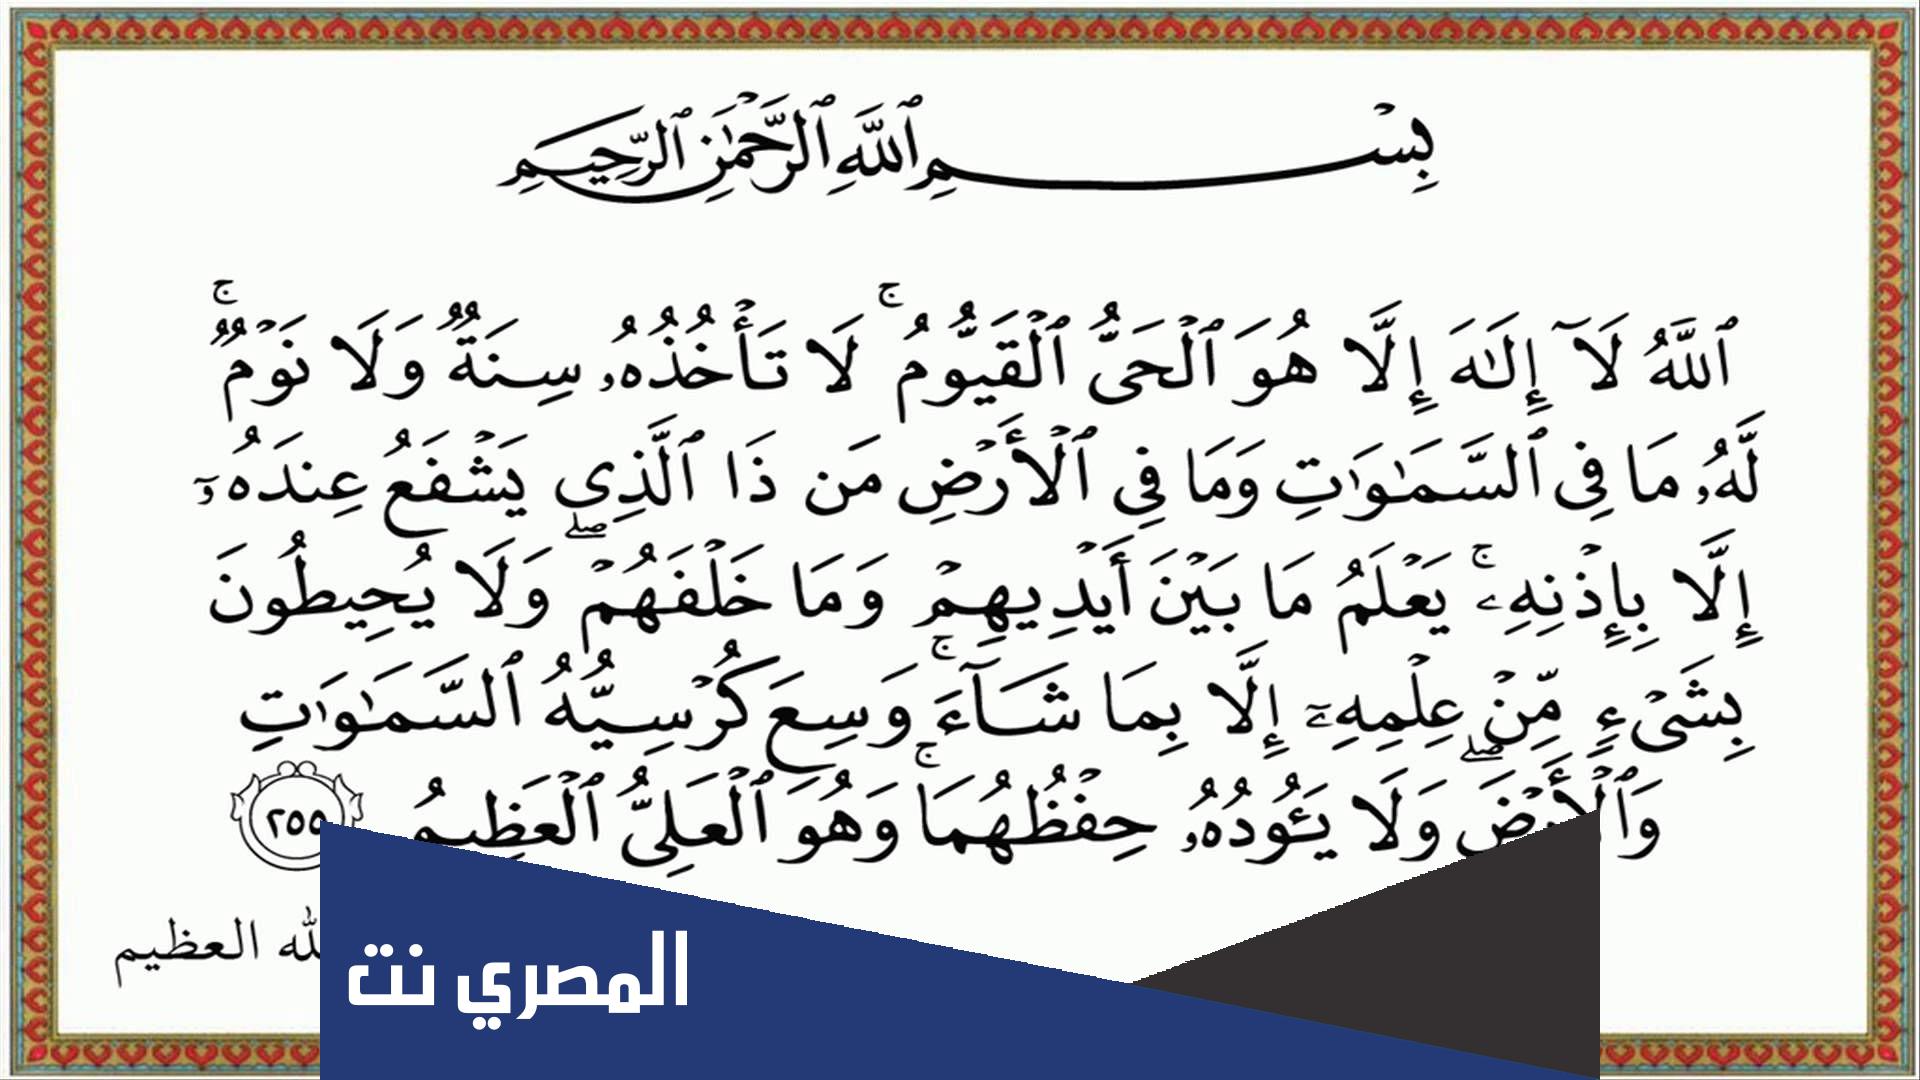 بِسْمِ ٱللَّهِ ٱلرَّحْمَٰنِ ٱلرَّحِيمِ
ٱللَّهُ لَآ إِلَٰهَ إِلَّا هُوَ ٱلْحَىُّ ٱلْقَيُّومُ ۚ لَا تَأْخُذُهُۥ سِنَةٌ وَلَا نَوْمٌ ۚ
لَّهُۥ مَا فِى ٱلسَّمَٰوَٰتِ وَمَا فِى ٱلْأَرْضِ مَن ذَا ٱلَّذِى يَشْفَعُ عِندَهُۥٓ
إِلَّا بِإِذْنِهِۦ ۚ يَعْلَمُ مَا بَيْنَ أَيْدِيهِمْ وَمَا خَلْفَهُمْ ۖ وَلَا يُحِيطُونَ
بِشَىْءٍ مِّنْ عِلْمِهِۦٓ إِلَّا بِمَا شَآءَ ۚ وَسِعَ كُرْسِيُّهُ ٱلسَّمَٰوَٰتِ
وَٱلْأَرْضَ ۖ وَلَا يَـُٔودُهُۥ حِفْظُهُمَا ۚ وَهُوَ ٱلْعَلِىُّ ٱلْعَظِيمُ ٢٥٥
العظيم
المصري نت